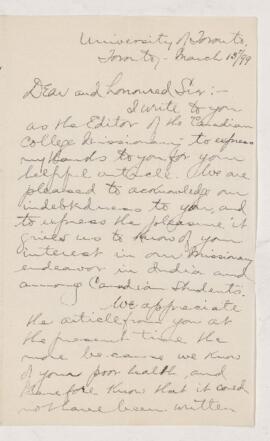 University of Toronto,
Toronto,- March 13/99
Dear and honoured Sir:-
I write to you
as the Editor of the Canadian
College Missionary to express
my thanks to you for your
helpful article. We are
pleased to acknowledge our
indebtedness to you, and
to express the pleasure it
gives us to know of your
interest in our Missionary
endeavor in India and
among Canadian Students.
We appreciate
the article from you at
the present time the
more because we know
of your poor health, and
therefore know that it could
not have been written